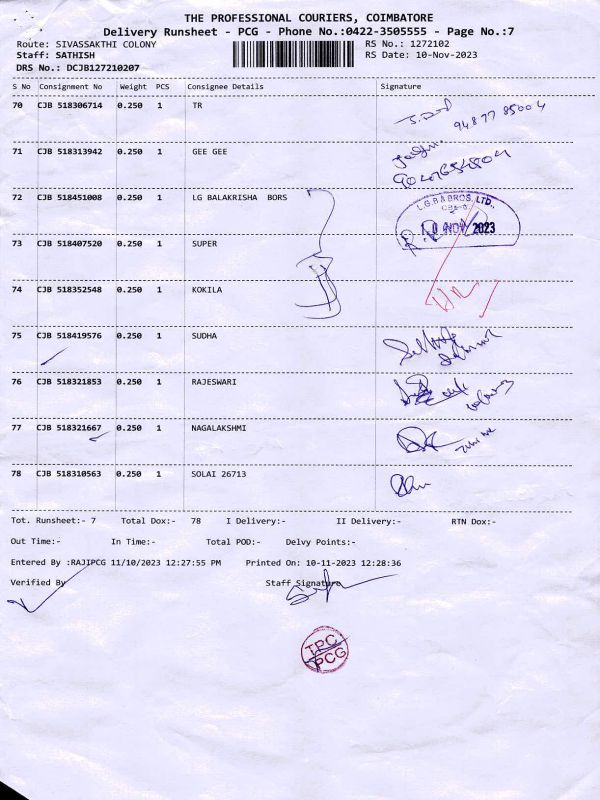 THE PROFESSIONAL COURIERS, COIMBATORE
Delivery Runsheet - PCG - Phone No.:0422-3505555 - Page No.:7
Route: SIVASSAKTHI COLONY RS No.: 1272102
Staff: SATHISH RS Date: 10-Nov-2023
DRS No.: DCJB127210207
S No Consignment No Weight PCS Consignee Details Signature
70 CJB 518306714 0.250 1 TR
94877 85004
71 CJB 518313942 0.250 1 GEE GEE
72 CJB 518451008 0.250 1 LG BALAKRISHA BORS
L.G.B & BROS. LTD.,
CBE-6.
10 NOV 2023
73 CJB 518407520 0.250 1 SUPER
74 CJB 518352548 0.250 1 KOKILA
75 CJB 518419576 0.250 1 SUDHA
76 CJB 518321853 0.250 1 RAJESWARI
77 CJB 518321667 0.250 1 NAGALAKSHMI
78 CJB 518310563 0.250 1 SOLAI 26713
Tot. Runsheet:- 7 Total Dox:- 78 I Delivery:- II Delivery:- RTN Dox:-
Out Time:- In Time:- Total POD:- Delvy Points:-
Entered By :RAJIPCG 11/10/2023 12:27:55 PM Printed On: 10-11-2023 12:28:36
Verified By Staff Signature
TPC
PCG